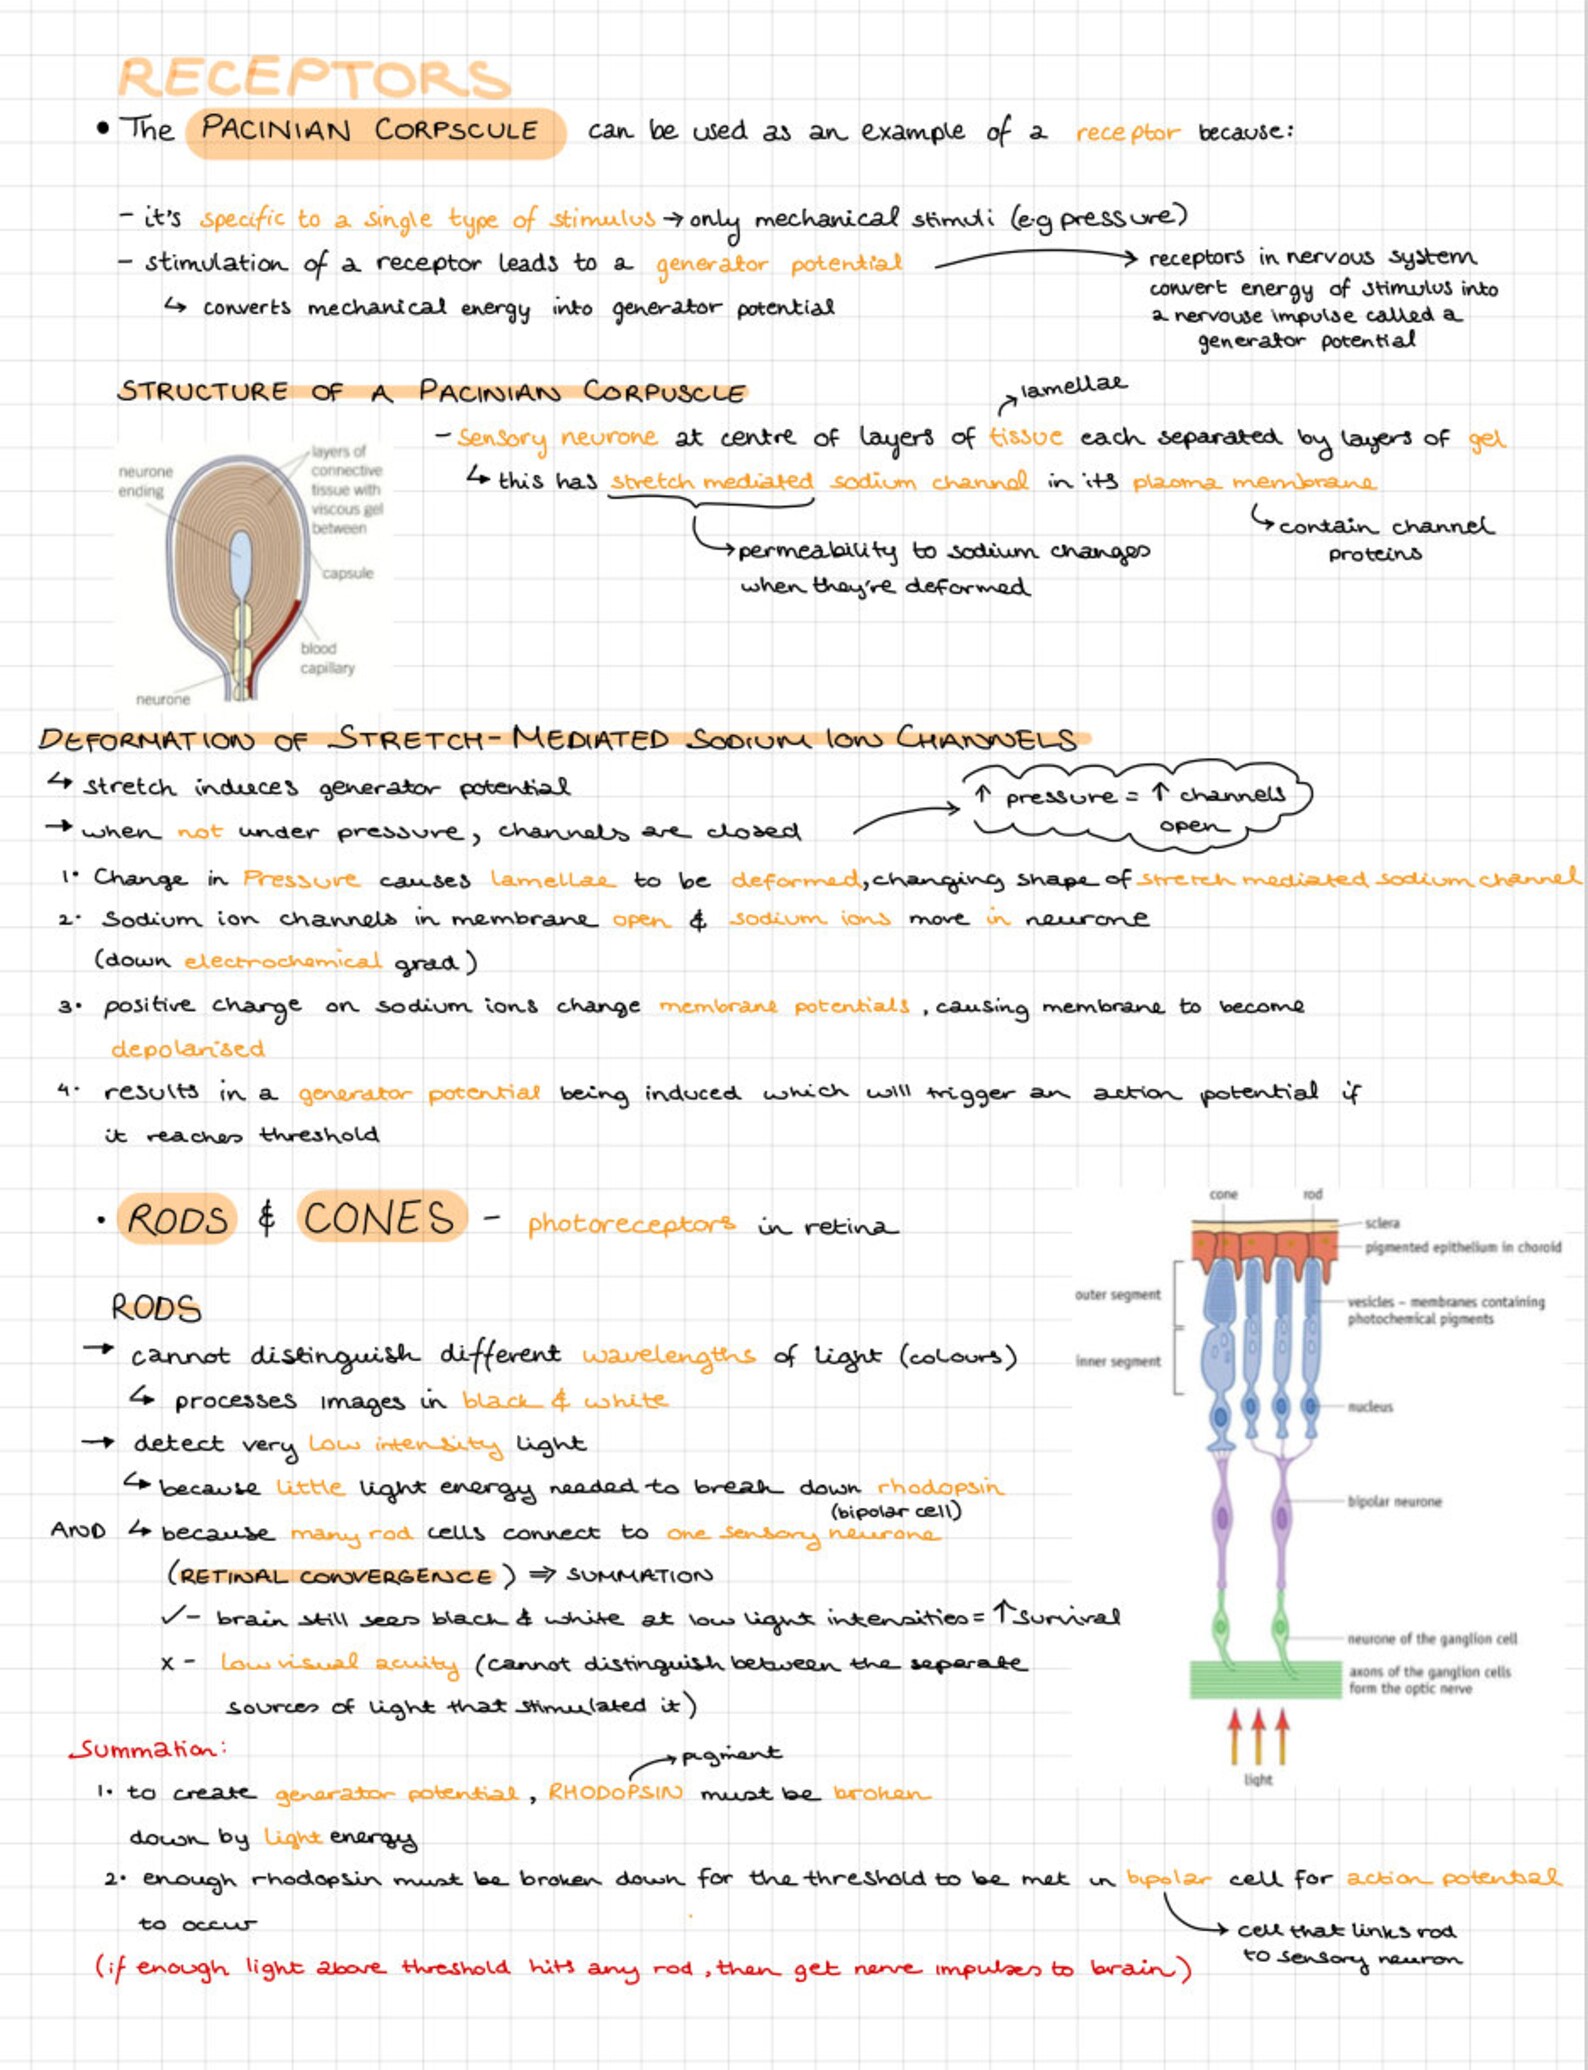 RECEPTORS
• The PACINIAN CORPSCULE can be used as an example of a receptor because:
- it's specific to a single type of stimulus → only mechanical stimuli (e.g pressure)
- stimulation of a receptor leads to a generator potential → receptors in nervous system
convert energy of stimulus into
a nervouse impulse called a
generator potential
↳ converts mechanical energy into generator potential
STRUCTURE OF A PACINIAN CORPUSCLE
lamellae
- Sensory neurone at centre of layers of tissue each separated by layers of gel
↳ this has stretch mediated sodium channel in its plasma membrane
↳ contain channel
proteins
→ permeability to sodium changes
when they're deformed
neurone
ending
layers of
connective
tissue with
viscous gel
between
capsule
blood
capillary
neurone
DEFORMATION OF STRETCH-MEDIATED SODIUM ION CHANNELS
↳ stretch induces generator potential
→ when not under pressure, channels are closed
↑ pressure = ↑ channels
open
1. Change in Pressure causes lamellae to be deformed, changing shape of stretch mediated sodium channel
2. Sodium ion channels in membrane open & sodium ions move in neurone
(down electrochemical grad)
3. positive charge on sodium ions change membrane potentials, causing membrane to become
depolarised
4. results in a generator potential being induced which will trigger an action potential if
it reaches threshold
• RODS & CONES - photoreceptors in retina
RODS
→ cannot distinguish different wavelengths of light (colours)
↳ processes images in black & white
→ detect very low intensity light
↳ because little light energy needed to break down rhodopsin
(bipolar cell)
AND ↳ because many rod cells connect to one sensory neurone
(RETINAL CONVERGENCE) ⇒ SUMMATION
✓- brain still sees black & white at low light intensities = ↑ survival
x - low visual acuity (cannot distinguish between the separate
sources of light that stimulated it)
cone rod
sclera
pigmented epithelium in choroid
outer segment
vesicles – membranes containing
photochemical pigments
inner segment
nucleus
bipolar neurone
neurone of the ganglion cell
axons of the ganglion cells
form the optic nerve
light
Summation:
→ pigment
1. to create generator potential, RHODOPSIN must be broken
down by light energy
2. enough rhodopsin must be broken down for the threshold to be met in bipolar cell for action potential
to occur
→ cell that links rod
to sensory neuron
(if enough light above threshold hits any rod, then get nerve impulses to brain)